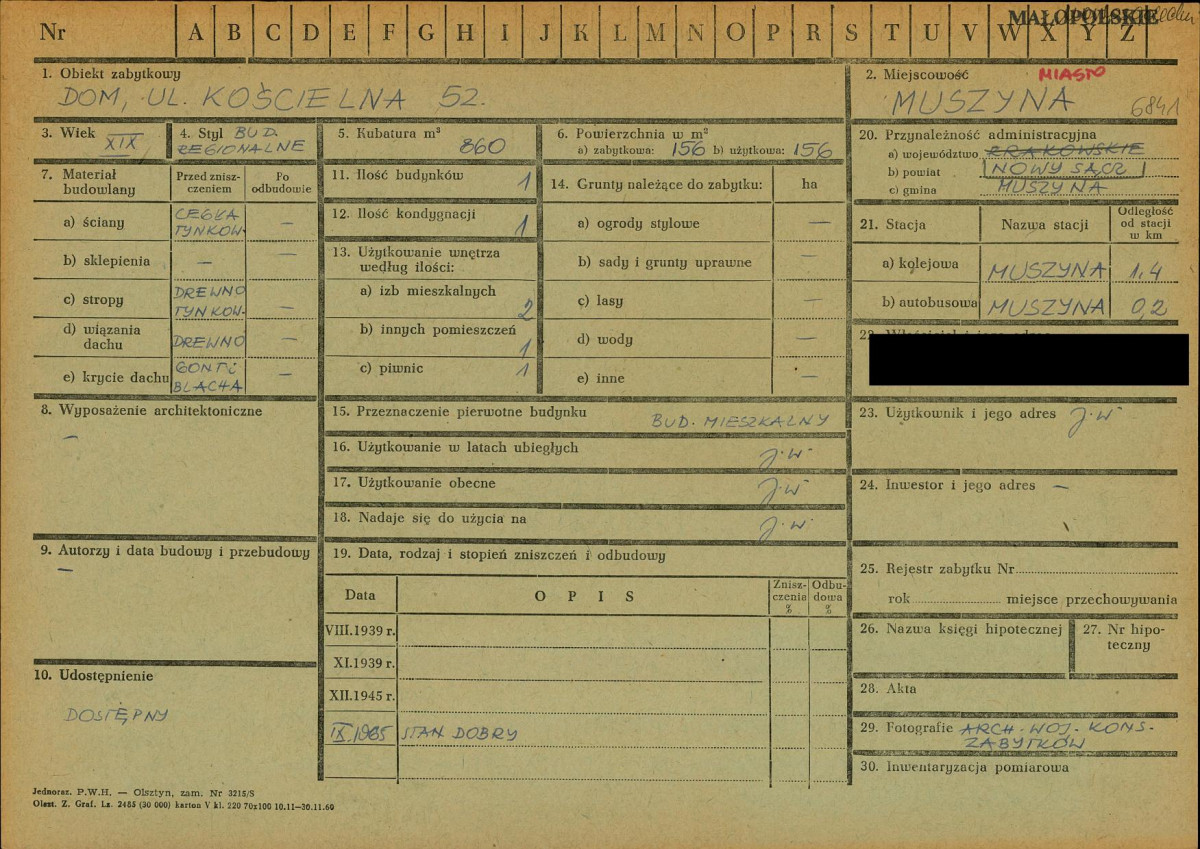 MAŁOPOLSKIE
Nr A B C D E F G H I J K L M N O P R S T U V W X Y Z
1. Obiekt zabytkowy
DOM, UL. KOŚCIELNA 52.
2. Miejscowość MIASTO
MUSZYNA 6841
3. Wiek XIX
4. Styl BUD.
REGIONALNE
5. Kubatura m³
860
6. Powierzchnia w m²
a) zabytkowa: 156 b) użytkowa: 156
7. Materiał budowlany
Przed zniszczeniem
Po odbudowie
a) ściany CEGŁA TYNKOW. —
b) sklepienia — —
c) stropy DREWNO TYNKOW. —
d) wiązania dachu DREWNO —
e) krycie dachu GONT i BLACHA —
8. Wyposażenie architektoniczne
—
9. Autorzy i data budowy i przebudowy
—
10. Udostępnienie
DOSTĘPNY
11. Ilość budynków 1
12. Ilość kondygnacji 1
13. Użytkowanie wnętrza
według ilości:
a) izb mieszkalnych 2
b) innych pomieszczeń 1
c) piwnic 1
14. Grunty należące do zabytku: ha
a) ogrody stylowe —
b) sady i grunty uprawne —
c) lasy —
d) wody —
e) inne —
15. Przeznaczenie pierwotne budynku
BUD. MIESZKALNY
16. Użytkowanie w latach ubiegłych j.w.
17. Użytkowanie obecne j.w.
18. Nadaje się do użycia na j.w.
19. Data, rodzaj i stopień zniszczeń i odbudowy
Data OPIS Zniszczenia % Odbudowa %
VIII.1939 r.
XI.1939 r.
XII.1945 r.
IX.1965 STAN DOBRY
20. Przynależność administracyjna
a) województwo KRAKOWSKIE
b) powiat NOWY SĄCZ
c) gmina MUSZYNA
21. Stacja Nazwa stacji Odległość od stacji w km
a) kolejowa MUSZYNA 1,4
b) autobusowa MUSZYNA 0,2
22.
23. Użytkownik i jego adres j.w.
24. Inwestor i jego adres —
25. Rejestr zabytku Nr
rok miejsce przechowywania
26. Nazwa księgi hipotecznej
27. Nr hipoteczny
28. Akta
29. Fotografie ARCH. WOJ. KONS.
ZABYTKÓW
30. Inwentaryzacja pomiarowa
Jednoraz. P.W.H. — Olsztyn, zam. Nr 3215/S
Olszt. Z. Graf. Lz. 2485 (30 000) karton V kl. 220 70x100 10.11—30.11.60